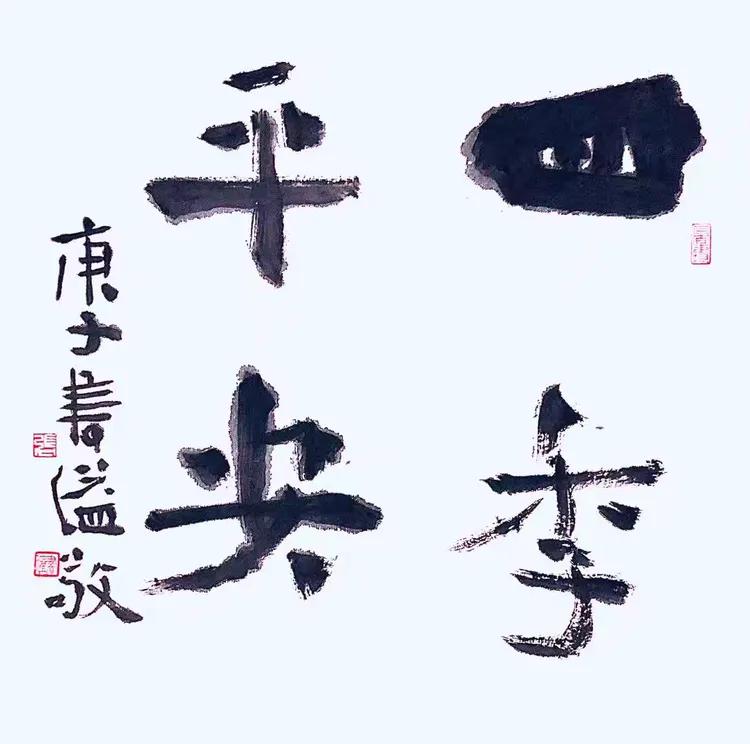 四季
平安
庚子春溢敬